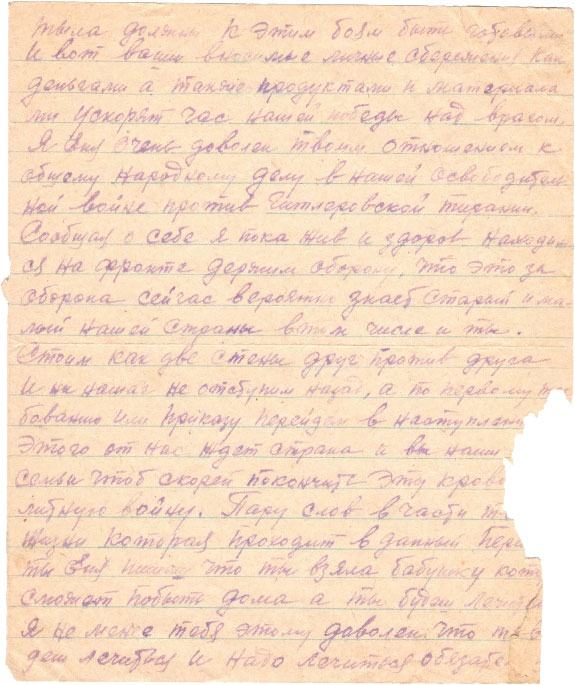 тыла должны к этим боям быть готовыми
И вот ваши вносимые личные сбережения как
деньгами а также продуктами и материала
ми ускорят час нашей победы над врагом.
Я Еня очень доволен твоим отношением к
общему народному делу в нашей освободитель
ной войне против Гитлеровской тирании.
Сообщая о себе я пока жив и здоров находим
ся на фронте держим оборону, что это за
оборона сейчас вероятно знает старый и ма
лый нашей страны в том числе и ты.
Стоим как две стены друг против друга
И ни шагу не отступим назад, а по первому
бованию или приказу перейдем в наступлен
Этого от нас ждет страна и вы наши
семьи чтоб скорей покончить эту крово
литную войну. Пару слов в части
жизни которая проходит в данный пери
ты Еня пишеш что ты взяла бабушку кот
сможет побыть дома а ты будеш лечит
Я не менее тебя этому даволен что
деш лечиться и надо лечиться обязате